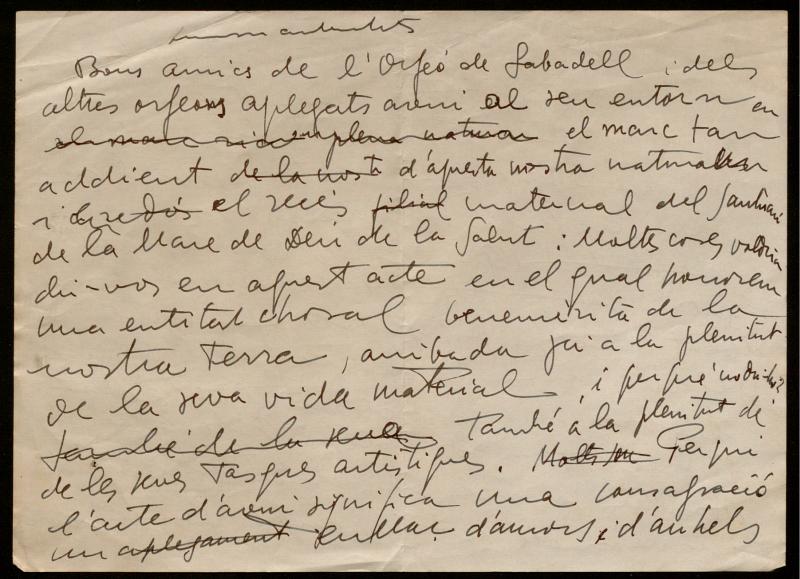 Bons amics de l'Orfeó de Sabadell i dels
altres orfeons aplegats avui al seu entorn en
el marc ric en plena natura el marc tan
addient de la nostra d'aquesta nostra naturalesa
i el recés filial maternal del Santuari
de la Mare de Déu de la Salut: Moltes coses voldria
dir-vos en aquest acte en el qual honorem
una entitat choral benemèrita de la
nostra terra, arribada ja a la plenitut
de la seva vida material, i perquè no dir-ho?
també de la seva També a la plenitut de
de les seves tasques artistiques. Molts son Perquè
l'acte d'avui significa una consagració
un aplegament enllaç d'amors i d'anhels